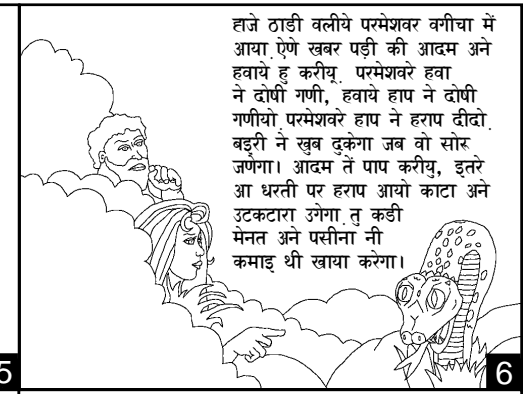 हाजे ठाडी वलीये परमेशवर वगीचा में
आया.ऐणे खबर पड़ी की आदम अने
हवाये हु करीयू. परमेशवरे हवा
ने दोषी गणी, हवाये हाप ने दोषी
गणीयो.परमेशवरे हाप ने हराप दीदो.
बइरी ने खुब दुकेगा जब वो सोरू
जणेगा। आदम तें पाप करीयु, इतरे
आ धरती पर हराप आयो काटा अने
उटकटारा उगेगा.तु कडी
मेनत अने पसीना नी
कमाइ थी खाया करेगा।
5
6